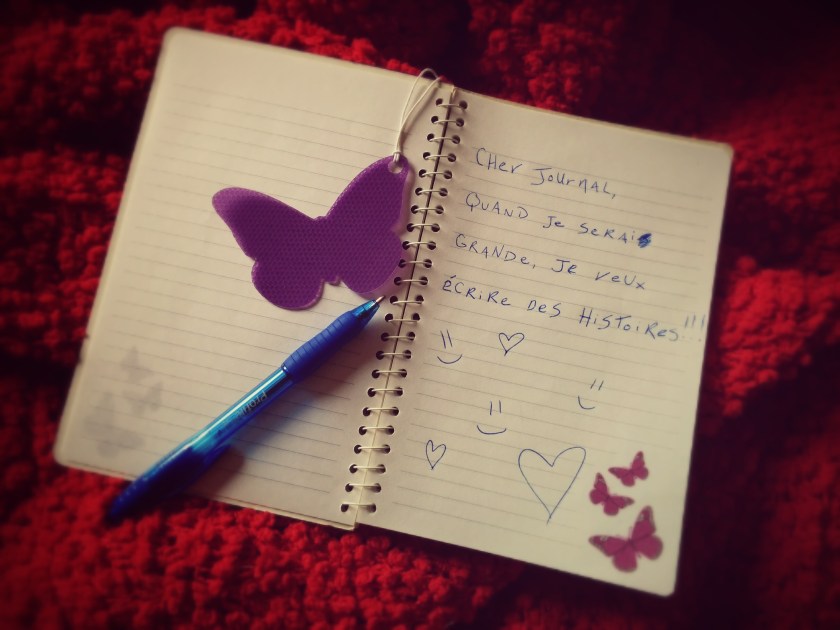 Cher Journal,
Quand je serai
grande, je veux
écrire des histoires!!!